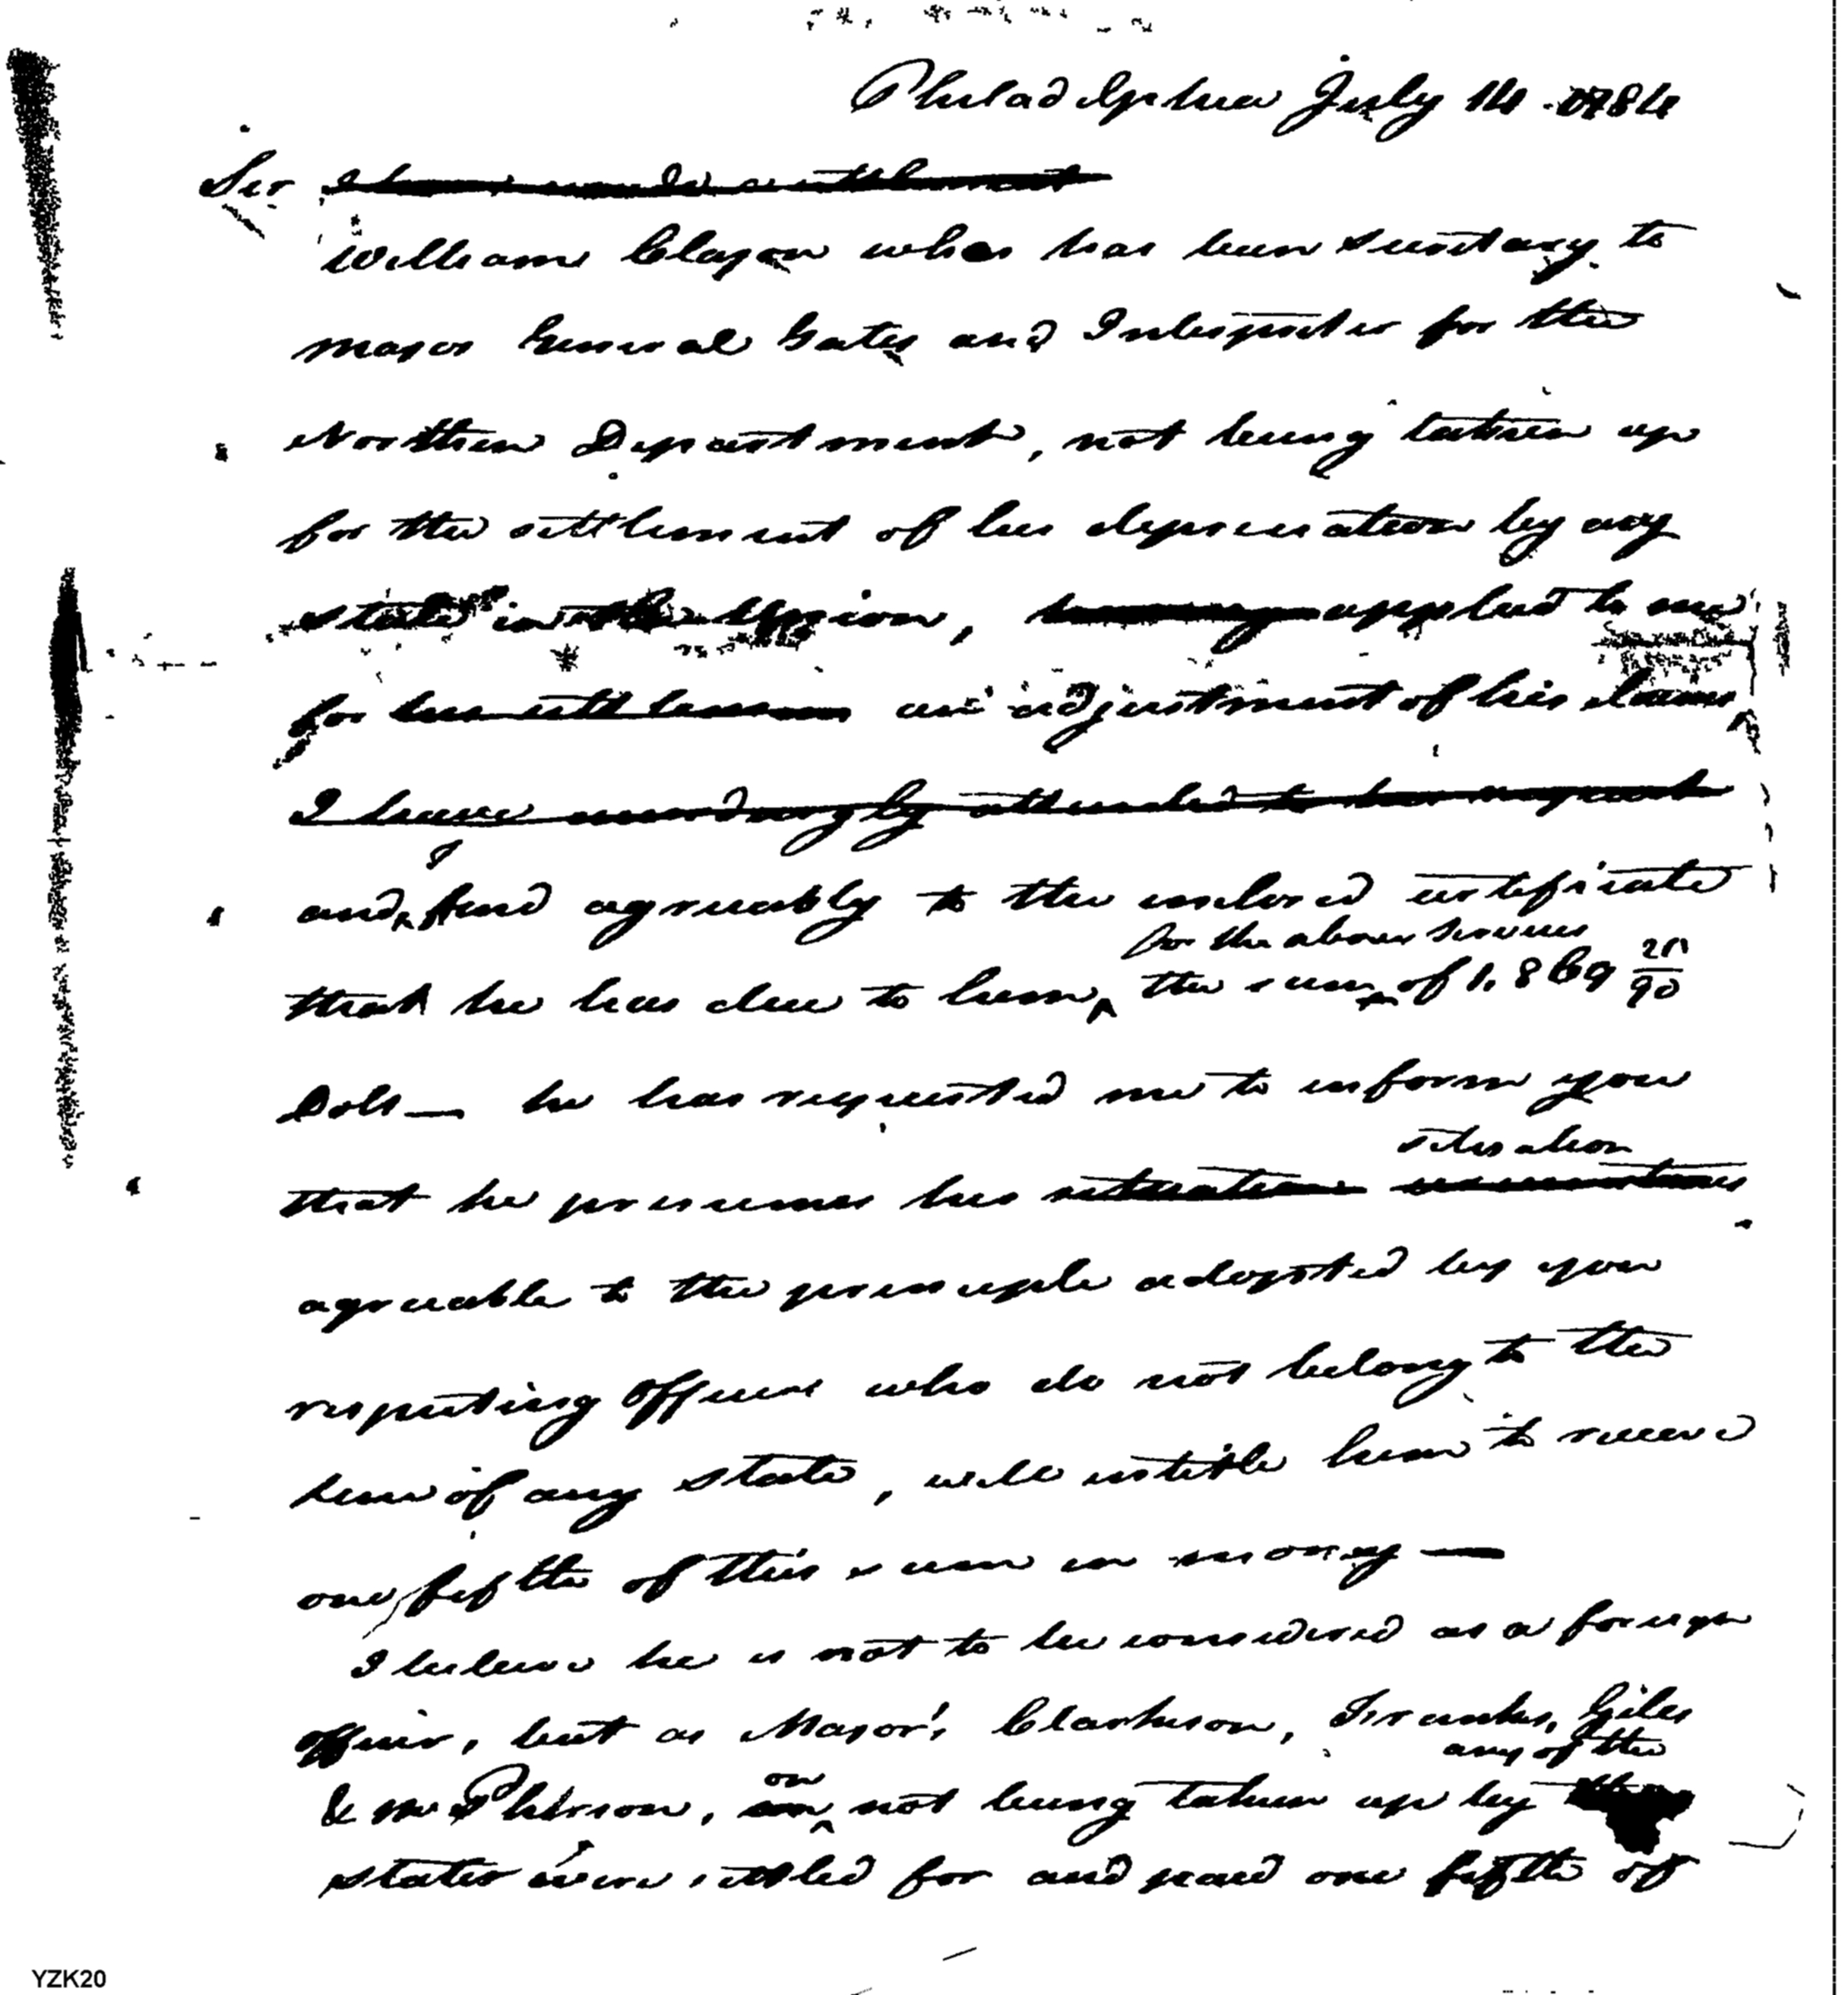 Philadelphia July 14 1784
Sir I have made a settlement
William Clajon who has been secretary to
major General Gates and Interpreter for the
Northern Department, not being taken up
for the settlement of his depreciation by any
state in the Union, having applied to me
for his settlement an adjustment of his claims
I have accordingly attended to his request
and I find agreeably to the inclosed certificate
for the above services
that he has due to him the sum of 1.869 20/90
Dolls — he has requested me to inform you
situation
that he presumes his situation circumstances
agreeable to the principle adopted by you
respecting officers who do not belong to the
line of any state, will intitle him to receive
one fifth of this sum in money —
I believe he is not to be considered as a foreign
officer, but as Major's Clarkson, Franks, Giles
any of the
& McPherson, on
not being taken up by the
states were settled for and paid one fifth of
YZK20